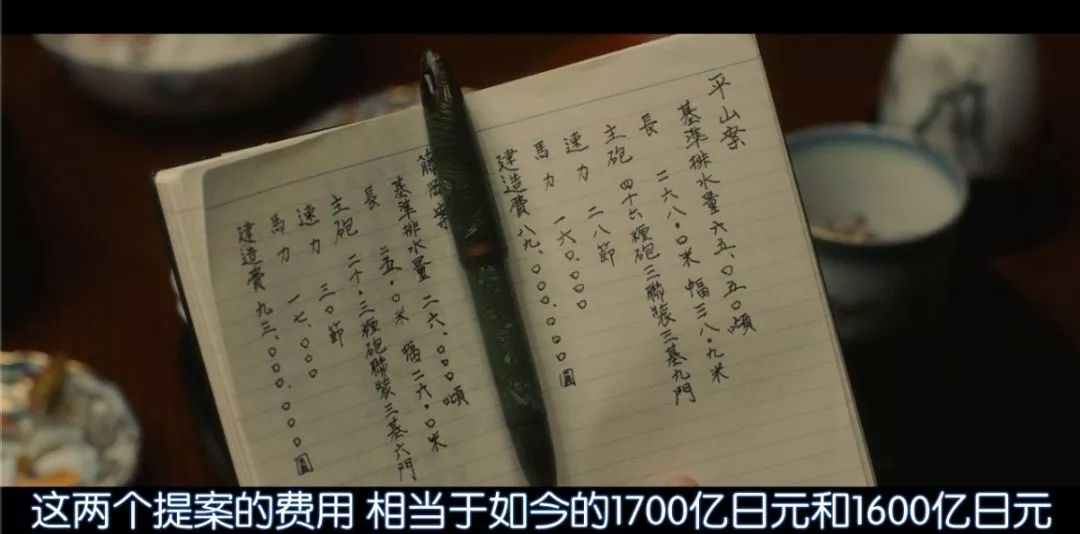 平山案
基準排水量六五.〇五〇噸
長 二六八.〇米 幅三八.九米
主砲 四十六糎砲三聯装三基九門
速力 二八節
馬力 一六〇.〇〇〇
建造費 八九.〇〇〇.〇〇〇圓
藤岡案
基準排水量 二六.〇〇〇噸
長 二五.〇米 幅二六.〇米
主砲 二十.三糎砲聯装三基六門
速力 三〇節
馬力 一七.〇〇〇
建造費 九三.〇〇〇.〇〇〇圓
这两个提案的费用 相当于如今的1700亿日元和1600亿日元